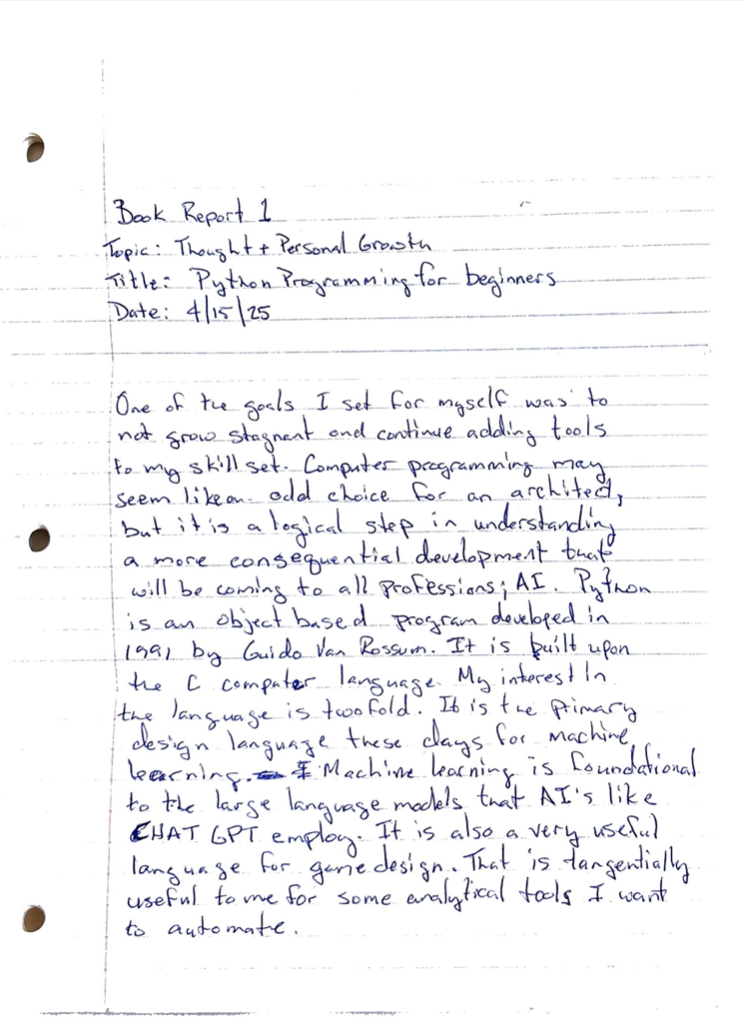 Book Report 1
Topic: Thought + Personal Growth
Title: Python Programming for beginners
Date: 4/15/25
One of the goals I set for myself was to
not grow stagnent and continue adding tools
to my skill set. Computer programming may
seem like an odd choice for an architect,
but it is a logical step in understanding
a more consequential development that
will be coming to all professions; AI. Python
is an object based program developed in
1991 by Guido Van Rossum. It is built upon
the C computer language. My interest In
the language is twofold. It is the primary
design language these days for machine
learning. Machine learning is foundational
to the large language models that AI's like
CHAT GPT employ. It is also a very useful
language for game design. That is tangentially
useful to me for some analytical tools I want
to automate.